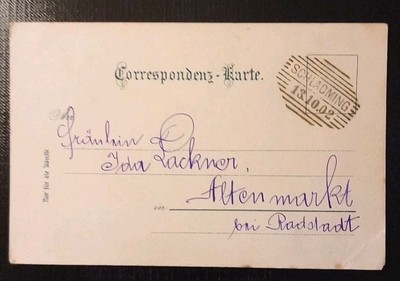 Correspondenz-Karte.
SCHLADMING
13.10.02
Fräulein
Ida Lackner,
Altenmarkt
bei Radstadt
Nur für die Adresse